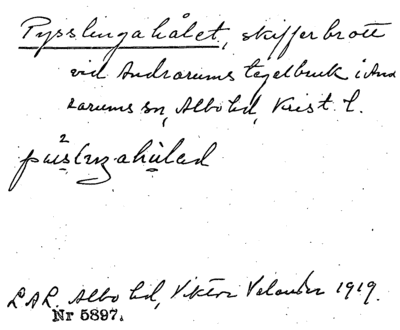 Pysslingahålet, skifferbrott
vid Andrarums tegelbruk i And
rarums sn, Albo hd, Krist. l.
L.A.R. Albo hd, Viktor 1919.
Nr 5897.